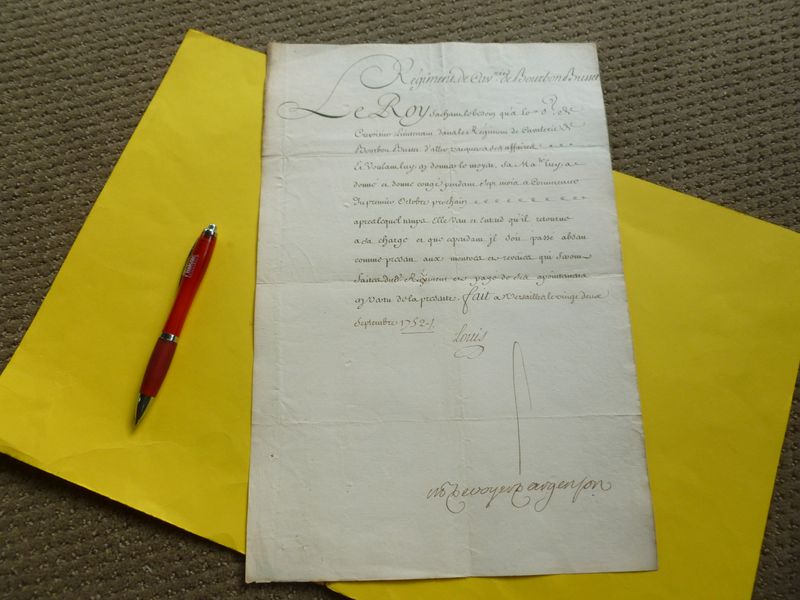 Régiment de Cav.rie de Bourbon Busset
Le Roy Sachant le besoin qu'a le S.r de
Lieutenant dans le Régiment de Cavalerie de
Bourbon Busset d'aller vacquer a ses affaires
Et Voulant luy en donner le moyen, Sa Ma.té luy a
donné et donne congé pendant Sept mois a Commencer
du premier Octobre prochain
apres lequel temps Elle Veut et Entend qu'il retourne
a sa charge et que cependant il soit passé absent
comme present aux montres et reveües qui seront
faites dud. Régiment et payé de ses apointemens
en Vertu de la presente. fait a Versailles le vingt deux
Septembre 1752
Louis
M. P. de voyer d'argenson